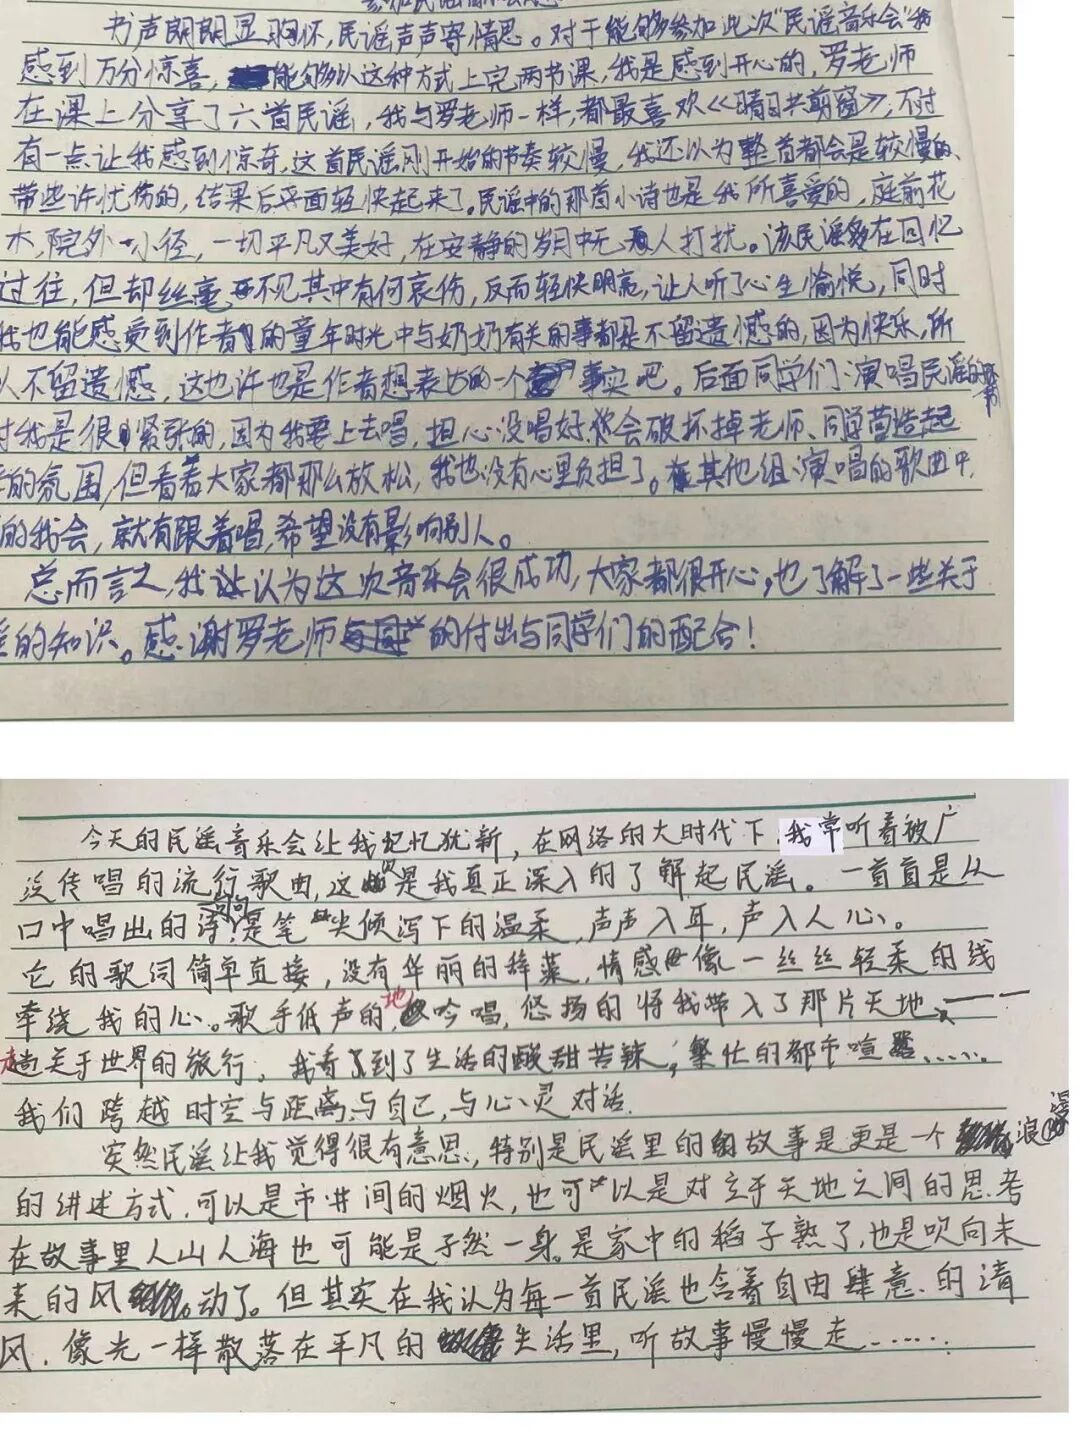 书声朗朗显胸怀，民谣声声寄情思。对于能够参加此次"民谣音乐会"我
感到万分惊喜，能够以这种方式上完两节课，我是感到开心的，罗老师
在课上分享了六首民谣，我与罗老师一样，都最喜欢《晴日共剪窗》，不过
有一点让我感到惊奇，这首民谣刚开始的节奏较慢，我还以为整首都会是较慢的、
带些许忧伤的，结果后面轻快起来了。民谣中的那首小诗也是我所喜爱的，庭前花
木，院外小径，一切平凡又美好，在安静的岁月中无人打扰。该民谣多在回忆
过往，但却丝毫不见其中有何哀伤，反而轻快明亮，让人听了心生愉悦，同时
我也能感受到作者的童年时光中与奶奶有关的事都是不留遗憾的，因为快乐，所
以不留遗憾，这也许也是作者想表达的一个事实吧。后面同学们演唱民谣的
时我是很紧张的，因为我要上去唱，担心没唱好会破坏掉老师、同学营造起
的氛围，但看着大家都那么放松，我也没有心里负担了。在其他组演唱的歌曲中，
的我会，就有跟着唱，希望没有影响别人。
总而言之，我认为这次音乐会很成功，大家都很开心，也了解了一些关于
的知识。感谢罗老师的付出与同学们的配合！
今天的民谣音乐会让我记忆犹新，在网络的大时代下，我常听着被广
泛传唱的流行歌曲，这是我真正深入的了解起民谣。一首首是从
口中唱出的诗，句句是笔尖倾泻下的温柔，声声入耳，声入人心。
它的歌词简单直接，没有华丽的辞藻，情感像一丝丝轻柔的线
牵绕我的心。歌手低声地吟唱，悠扬的将我带入了那片天地——
趟关于世界的旅行，我看到了生活的酸甜苦辣，繁忙的都市喧嚣……
我们跨越时空与距离，与自己，与心灵对话。
突然民谣让我觉得很有意思，特别是民谣里的故事是更是一个浪漫
的讲述方式，可以是市井间的烟火，也可以是对立于天地之间的思考
在故事里人山人海也可能是孑然一身。是家中的稻子熟了，也是吹向未
来的风动了。但其实在我认为每一首民谣也含着自由肆意的清
风，像光一样散落在平凡的生活里，听故事慢慢走……